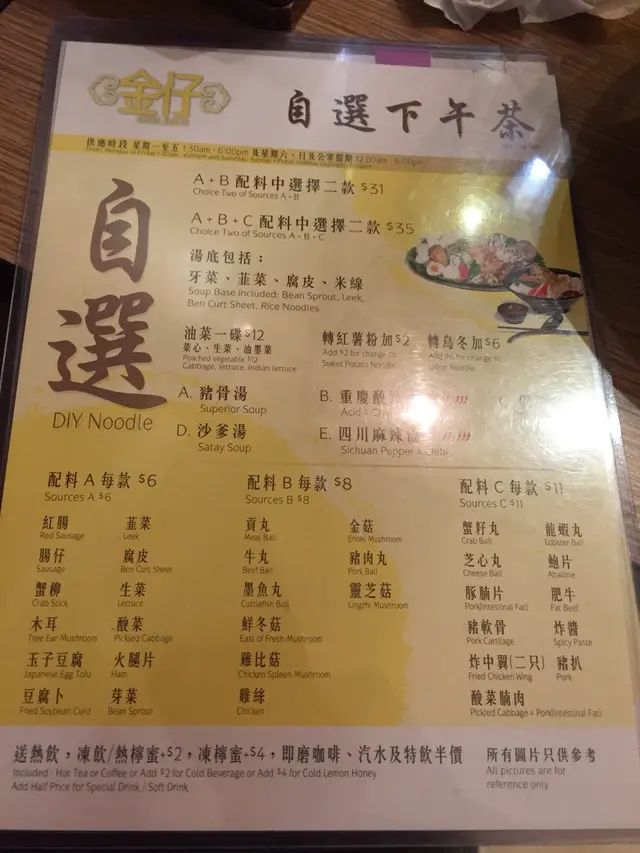 金仔
自選下午茶
供應時段 星期一至五
及星期六、日及公眾假期
自選
DIY Noodle
A + B 配料中選擇二款 $31
Choice Two of Sources A + B
A + B + C 配料中選擇二款 $35
Choice Two of Sources A + B + C
湯底包括：
牙菜、韮菜、腐皮、米線
Soup Base included: Bean Sprout, Leek,
Ben Curt Sheet, Rice Noodles
油菜一碟 $12
菜心、生菜、油墨菜
Poached Vegetable $12
Cabbage, lettuce, Indian lettuce
轉紅薯粉加 $2
Add $2 for change to
Sweet Potato Noodle
轉烏冬加 $6
Add $6 for change to
Udon Noodle
A. 豬骨湯
Superior Soup
B. 重慶酸
Acid &
D. 沙爹湯
Satay Soup
E. 四川麻辣
Sichuan Pepper &
配料 A 每款 $6
Sources A $6
紅腸 韮菜
Red Sausage Leek
腸仔 腐皮
Sausage Ben Curt Sheet
蟹柳 生菜
Crab Stick Lettuce
木耳 酸菜
Tree Ear Mushroom Pickled Cabbage
玉子豆腐 火腿片
Japanese Egg Tofu Ham
豆腐卜 芽菜
Fried Soybean Curd Bean Sprout
配料 B 每款 $8
Sources B $8
貢丸 金菇
Meat Ball Enoki Mushroom
牛丸 豬肉丸
Beef Ball Pork Ball
墨魚丸 靈芝菇
Cuttlefish Ball Lingzhi Mushroom
鮮冬菇
East of Fresh Mushroom
雞比菇
Chicken Spleen Mushroom
雞絲
Chicken
配料 C 每款 $11
Sources C $11
蟹籽丸 龍蝦丸
Crab Ball Lobster Ball
芝心丸 鮑片
Cheese Ball Abalone
豚腩片 肥牛
Pork(Intestinal Fat) Fat Beef
豬軟骨 炸醬
Pork Cartilage Spicy Paste
炸中翼(二只) 豬扒
Fried Chicken Wing Pork
酸菜腩肉
Pickled Cabbage & Pork(Intestinal Fat)
送熱飲，凍飲/熱檸蜜+$2，凍檸蜜+$4，即磨咖啡、汽水及特飲半價
Included : Hot Tea or Coffee or Add $2 for Cold Beverage or Add $4 for Cold Lemon Honey
Add Half Price for Special Drink / Soft Drink
所有圖片只供參考
All pictures are for
reference only